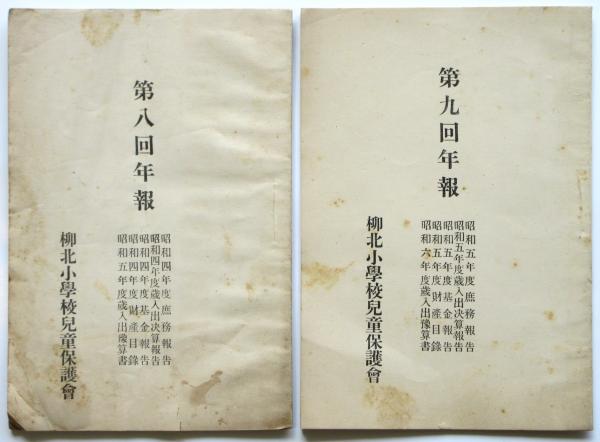 第八回年報
昭和四年度庶務報告
昭和四年度歳入出決算報告
昭和四年度基金報告
昭和四年度財產目錄
昭和五年度歳入出豫算書
柳北小學校兒童保護會
第九回年報
昭和五年度庶務報告
昭和五年度歳入出決算報告
昭和五年度基金報告
昭和五年度財產目錄
昭和六年度歳入出豫算書
柳北小學校兒童保護會